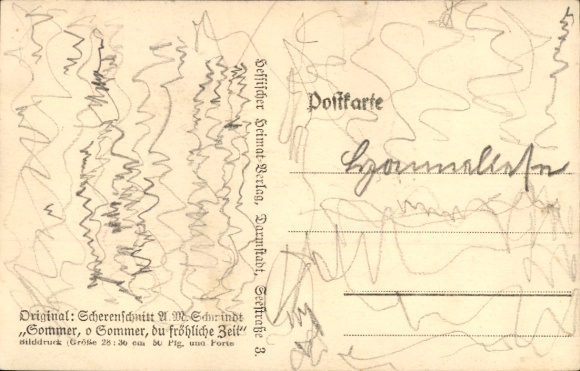 Original: Scherenschnitt A. M. Schwindt
„Sommer, o Sommer, du fröhliche Zeit“
Bilddruck (Größe 28:36 cm 50 Pfg. und Porto
Hessischer Heimat-Verlag, Darmstadt, Seestraße 3.
Postkarte